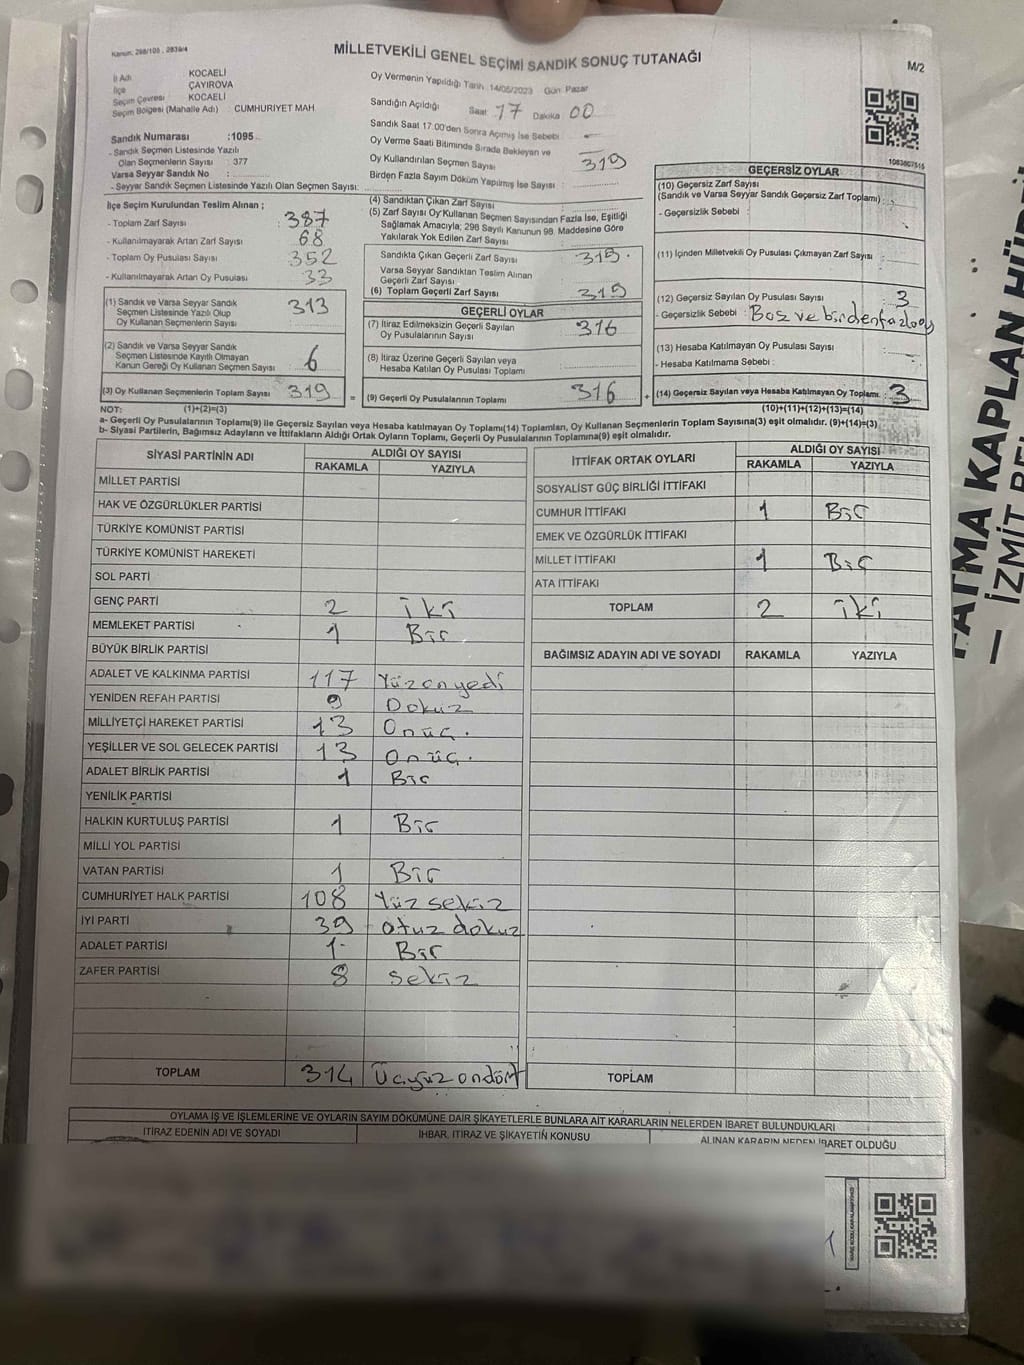 Kanun, 298/105 , 2839/4
MİLLETVEKİLİ GENEL SEÇİMİ SANDIK SONUÇ TUTANAĞI
M/2
İl Adı KOCAELİ
İlçe ÇAYIROVA
Seçim Çevresi KOCAELİ
Seçim Bölgesi (Mahalle Adı) CUMHURİYET MAH.
Sandık Numarası :1095
- Sandık Seçmen Listesinde Yazılı
Olan Seçmenlerin Sayısı : 377
Varsa Seyyar Sandık No :
- Seyyar Sandık Seçmen Listesinde Yazılı Olan Seçmen Sayısı:
Oy Vermenin Yapıldığı Tarih 14/05/2023 Gün: Pazar
Sandığın Açıldığı Saat 17 Dakika 00
Sandık Saat 17.00'den Sonra Açmış İse Sebebi -
Oy Verme Saati Bitiminde Sırada Bekleyen ve
Oy Kullandırılan Seçmen Sayısı 319
Birden Fazla Sayım Döküm Yapılmış İse Sayısı :
1083807515
İlçe Seçim Kurulundan Teslim Alınan ;
- Toplam Zarf Sayısı : 387
- Kullanılmayarak Artan Zarf Sayısı 68
- Toplam Oy Pusulası Sayısı : 352
- Kullanılmayarak Artan Oy Pusulası 33
(1) Sandık ve Varsa Seyyar Sandık
Seçmen Listesinde Yazılı Olup
Oy Kullanan Seçmenlerin Sayısı : 313
(2) Sandık ve Varsa Seyyar Sandık
Seçmen Listesinde Kayıtlı Olmayan
Kanun Gereği Oy Kullanan Seçmen Sayısı : 6
(3) Oy Kullanan Seçmenlerin Toplam Sayısı : 319 =
(4) Sandıktan Çıkan Zarf Sayısı
(5) Zarf Sayısı Oy Kullanan Seçmen Sayısından Fazla İse, Eşitliği
Sağlamak Amacıyla; 298 Sayılı Kanunun 98. Maddesine Göre
Yakılarak Yok Edilen Zarf Sayısı :
Sandıkta Çıkan Geçerli Zarf Sayısı : 319.
Varsa Seyyar Sandıktan Teslim Alınan
Geçerli Zarf Sayısı :
(6) Toplam Geçerli Zarf Sayısı : 319
GEÇERLİ OYLAR
(7) İtiraz Edilmeksizin Geçerli Sayılan
Oy Pusulalarının Sayısı : 316
(8) İtiraz Üzerine Geçerli Sayılan veya
Hesaba Katılan Oy Pusulası Toplamı :
(9) Geçerli Oy Pusulalarının Toplamı : 316 +
GEÇERSİZ OYLAR
(10) Geçersiz Zarf Sayısı
(Sandık ve Varsa Seyyar Sandık Geçersiz Zarf Toplamı) :
- Geçersizlik Sebebi :
(11) İçinden Milletvekili Oy Pusulası Çıkmayan Zarf Sayısı :
(12) Geçersiz Sayılan Oy Pusulası Sayısı : 3
- Geçersizlik Sebebi : Boş ve birden fazla oy
(13) Hesaba Katılmayan Oy Pusulası Sayısı :
- Hesaba Katılmama Sebebi :
(14) Geçersiz Sayılan veya Hesaba Katılmayan Oy Toplamı. : 3
NOT: (1)+(2)=(3) (10)+(11)+(12)+(13)=(14)
a- Geçerli Oy Pusulalarının Toplamı(9) ile Geçersiz Sayılan veya Hesaba katılmayan Oy Toplamı(14) Toplamları, Oy Kullanan Seçmenlerin Toplam Sayısına(3) eşit olmalıdır. (9)+(14)=(3)
b- Siyasi Partilerin, Bağımsız Adayların ve İttifakların Aldığı Ortak Oyların Toplamı, Geçerli Oy Pusulalarının Toplamına(9) eşit olmalıdır.
SİYASİ PARTİNİN ADI ALDIĞI OY SAYISI
RAKAMLA YAZIYLA
MİLLET PARTİSİ
HAK VE ÖZGÜRLÜKLER PARTİSİ
TÜRKİYE KOMÜNİST PARTİSİ
TÜRKİYE KOMÜNİST HAREKETİ
SOL PARTİ
GENÇ PARTİ 2 iki
MEMLEKET PARTİSİ 1 Bir
BÜYÜK BİRLİK PARTİSİ
ADALET VE KALKINMA PARTİSİ 117 Yüzonyedi
YENİDEN REFAH PARTİSİ 9 Dokuz
MİLLİYETÇİ HAREKET PARTİSİ 13 Onüç.
YEŞİLLER VE SOL GELECEK PARTİSİ 13 Onüç.
ADALET BİRLİK PARTİSİ 1 Bir
YENİLİK PARTİSİ
HALKIN KURTULUŞ PARTİSİ 1 Bir
MİLLİ YOL PARTİSİ
VATAN PARTİSİ 1 Bir
CUMHURİYET HALK PARTİSİ 108 Yüz sekiz
İYİ PARTİ 39 otuz dokuz
ADALET PARTİSİ 1 Bir
ZAFER PARTİSİ 8 sekiz
TOPLAM 314 Üçyüzondört
İTTİFAK ORTAK OYLARI ALDIĞI OY SAYISI
RAKAMLA YAZIYLA
SOSYALİST GÜÇ BİRLİĞİ İTTİFAKI
CUMHUR İTTİFAKI 1 Bir
EMEK VE ÖZGÜRLÜK İTTİFAKI
MİLLET İTTİFAKI 1 Bir
ATA İTTİFAKI
TOPLAM 2 iki
BAĞIMSIZ ADAYIN ADI VE SOYADI RAKAMLA YAZIYLA
TOPLAM
OYLAMA İŞ VE İŞLEMLERİNE VE OYLARIN SAYIM DÖKÜMÜNE DAİR ŞİKAYETLERLE BUNLARA AİT KARARLARIN NELERDEN İBARET BULUNDUKLARI
İTİRAZ EDENİN ADI VE SOYADI İHBAR, İTİRAZ VE ŞİKAYETİN KONUSU ALINAN KARARIN NEDEN İBARET OLDUĞU
FATMA KAPLAN HÜR
— İZMİT BEL